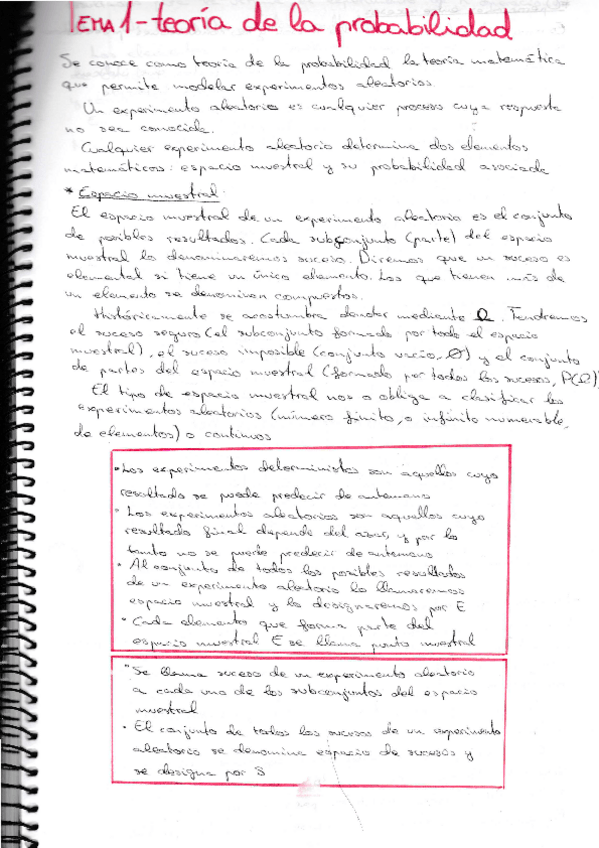 TEMA 1 - teoría de la probabilidad
Se conoce como teoría de la probabilidad la teoría matemática
que permite modelar experimentos aleatorios.
Un experimento aleatorio es cualquier proceso cuya respuesta
no sea conocida.
Cualquier experimento aleatorio determina dos elementos
matemáticos: espacio muestral y su probabilidad asociada
* Espacio muestral:
El espacio muestral de un experimento aleatorio es el conjunto
de posibles resultados. Cada subconjunto (parte) del espacio
muestral lo denominaremos suceso. Diremos que un suceso es
elemental si tiene un único elemento. Los que tienen más de
un elemento se denominan compuestos.
Históricamente se acostumbra denotar mediante Ω. Tendremos
el suceso seguro (el subconjunto formado por todo el espacio
muestral), el suceso imposible (conjunto vacío, Ø) y el conjunto
de partes del espacio muestral (formado por todos los sucesos, P(Ω))
El tipo de espacio muestral nos o obliga a clasificar los
experimentos aleatorios (número finito, o infinito numerable,
de elementos) o continuos
• Los experimentos deterministas son aquellos cuyo
resultado se puede predecir de antemano
• Los experimentos aleatorios son aquellos cuyo
resultado final depende del azar, y por lo
tanto no se puede predecir de antemano
• Al conjunto de todos los posibles resultados
de un experimento aleatorio lo llamaremos
espacio muestral y lo designaremos por E
• Cada elemento que forma parte del
espacio muestral E se llama punto muestral
• Se llama suceso de un experimento aleatorio
a cada uno de los subconjuntos del espacio
muestral
• El conjunto de todos los sucesos de un experimento
aleatorio se denomina espacio de sucesos y
se designa por S